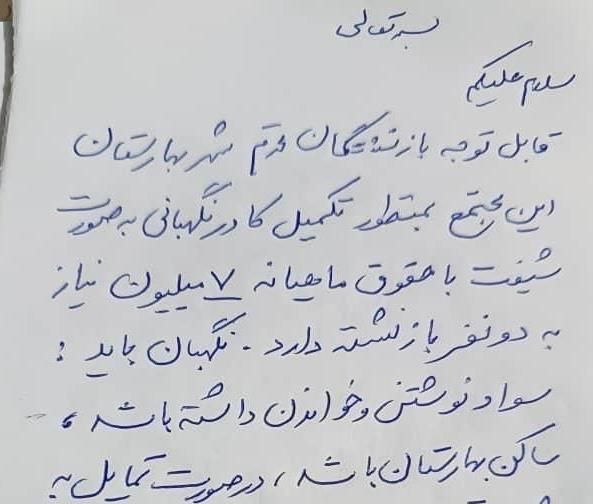 بسمه تعالی
سلام علیکم
قابل توجه بازنشستگان محترم شهر بهارستان
این مجتمع بمنظور تکمیل کادر نگهبانی به صورت
شیفت با حقوق ماهیانه ۷ میلیون نیاز
به دو نفر بازنشسته دارد. نگهبان باید :
سواد نوشتن و خواندن داشته باشد،
ساکن بهارستان باشد، در صورت تمایل به